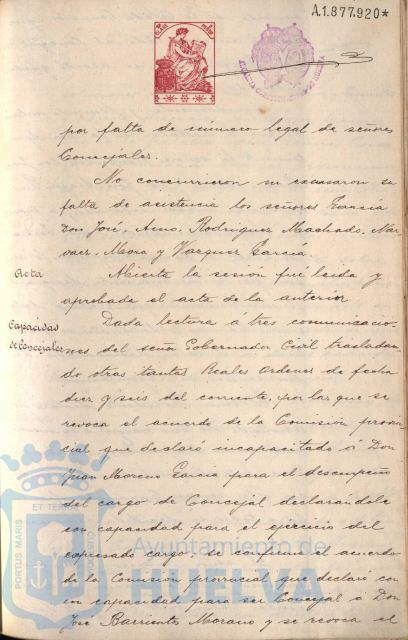 A.1.877.920*
por falta de número legal de señores
Concejales.
No concurrieron ni excusaron su
falta de asistencia los señores García
Don José, Amo, Rodriguez Machado, Nar-
vaez, Mora y Vazquez García
Acta
Abierta la sesión fué leida y
aprobada el acta de la anterior
Capacidad
de Concejales
Dada lectura á tres comunicacio-
nes del señor Gobernador Civil trasladan-
do otras tantas Reales ordenes de fecha
diez y seis del corriente, por las que se
revoca el acuerdo de la Comisión provin-
cial que declaró incapacitado á Don
Juan Moreno García para el desempeño
del cargo de Concejal declarandole
con capacidad para el ejercicio del
expresado cargo: se confirma el acuerdo
de la Comisión provincial que declaró con
con capacidad para ser Concejal á Don
José Barrientos Morano y se revoca el
PORTUS MARIS
ET TERRÆ
Ayuntamiento de
HUELVA